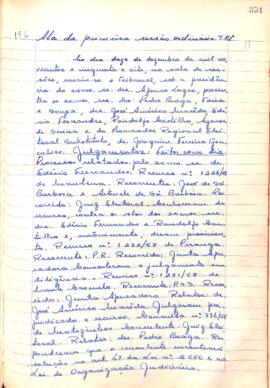 351
196
Ata da primeira sessão ordinária. T.R.E
Ao dia doze de dezembro de mil no-
vecentos e cinquenta e oito, na sala de ses-
sões, reuniu-se o Tribunal, sob a presidên-
cia do exmo. sr. des. Afonso Lages, presen-
tes os exmos. srs. des. Pedro Braga, Faria
e Souza, drs. José Américo Macêdo, Edé-
sio Fernandes, Randolfo Castilho,
de Sousa e do Procurador Regional Elei-
toral Substituto, dr. Joaquim Ferreira Gon-
çalves. Julgamentos: Feitos com dia
Processos relatados pelo exmo. sr. dr.
Edésio Fernandes: Recurso n. 1226/58
de Recorrentes: José de Sá
Barbosa e de Sá Barbosa. Re-
corrido: Juiz Eleitoral.
do recurso, contra o votos dos exmos. srs.
drs. Edésio Fernandes e Randolfo Cas-
tilho e, deram provimen-
to. Recurso n. 1232/58 de Piranga.
Recorrente: P.R. Recorrido: Junta Apu-
radora Converteram o julgamento em
diligência. Recurso n. 1231/58 de
Recorrente: P.S.D. Recor-
rido: Junta Apuradora Relator: dr.
José Américo Macêdo. Julgaram pre-
judicado o recurso. Consulta n. 376/58
de Matozinhos Consulente: Juiz Elei-
toral. Relator: des. Pedro Braga. Res-
ponderam que o consulente encontrará
solução no art. 67 da Lei n. 2550 e na
Lei de Organização Judiciária.